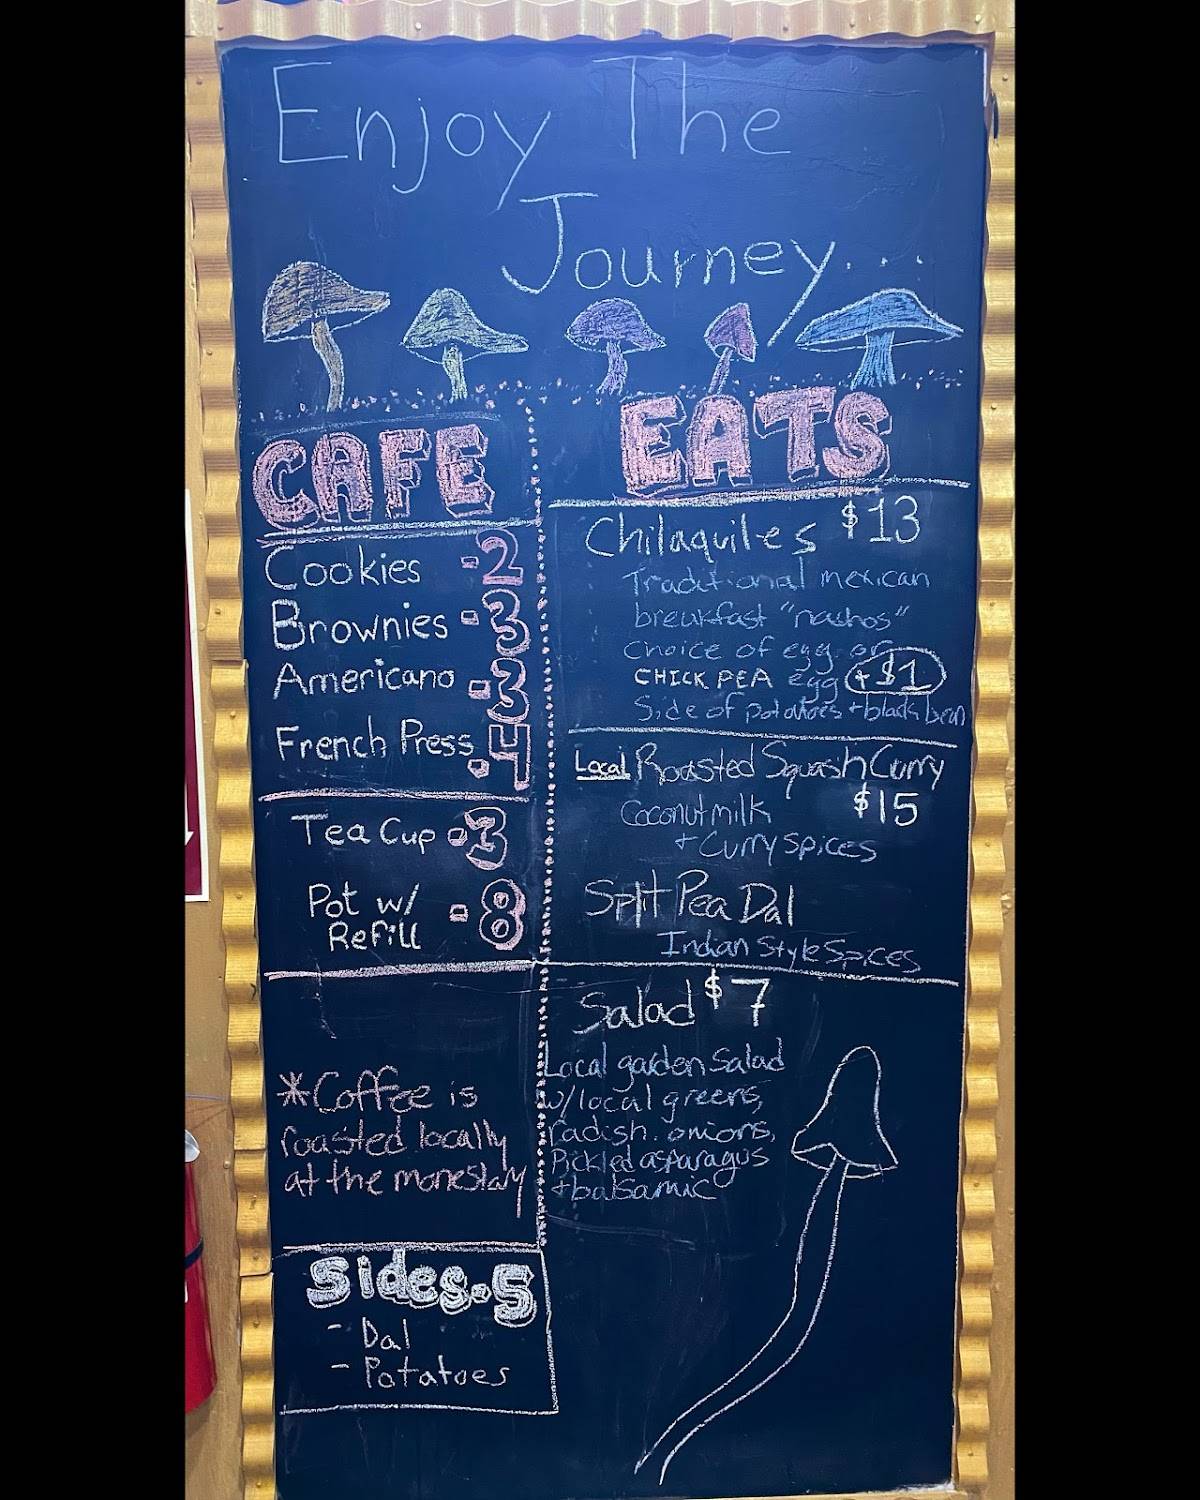 Enjoy The
Journey...
CAFE
Cookies -2
Brownies -3
Americano -3
French Press -4
Tea Cup -3
Pot w/ -8
Refill
*Coffee is
roasted locally
at the monestary
Sides -5
- Dal
- Potatoes
EATS
Chilaquiles $13
Traditional mexican
breakfast "nachos"
choice of egg or
CHICK PEA egg +$1
Side of potatoes + black bean
Local Roasted Squash Curry
Coconut milk $15
+ Curry spices
Split Pea Dal
Indian Style Spices
Salad $7
Local garden Salad
w/local greens,
radish. onions,
Pickled asparagus
+balsamic